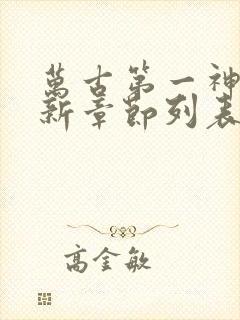 萬古第一神
新章節列表
高金敏